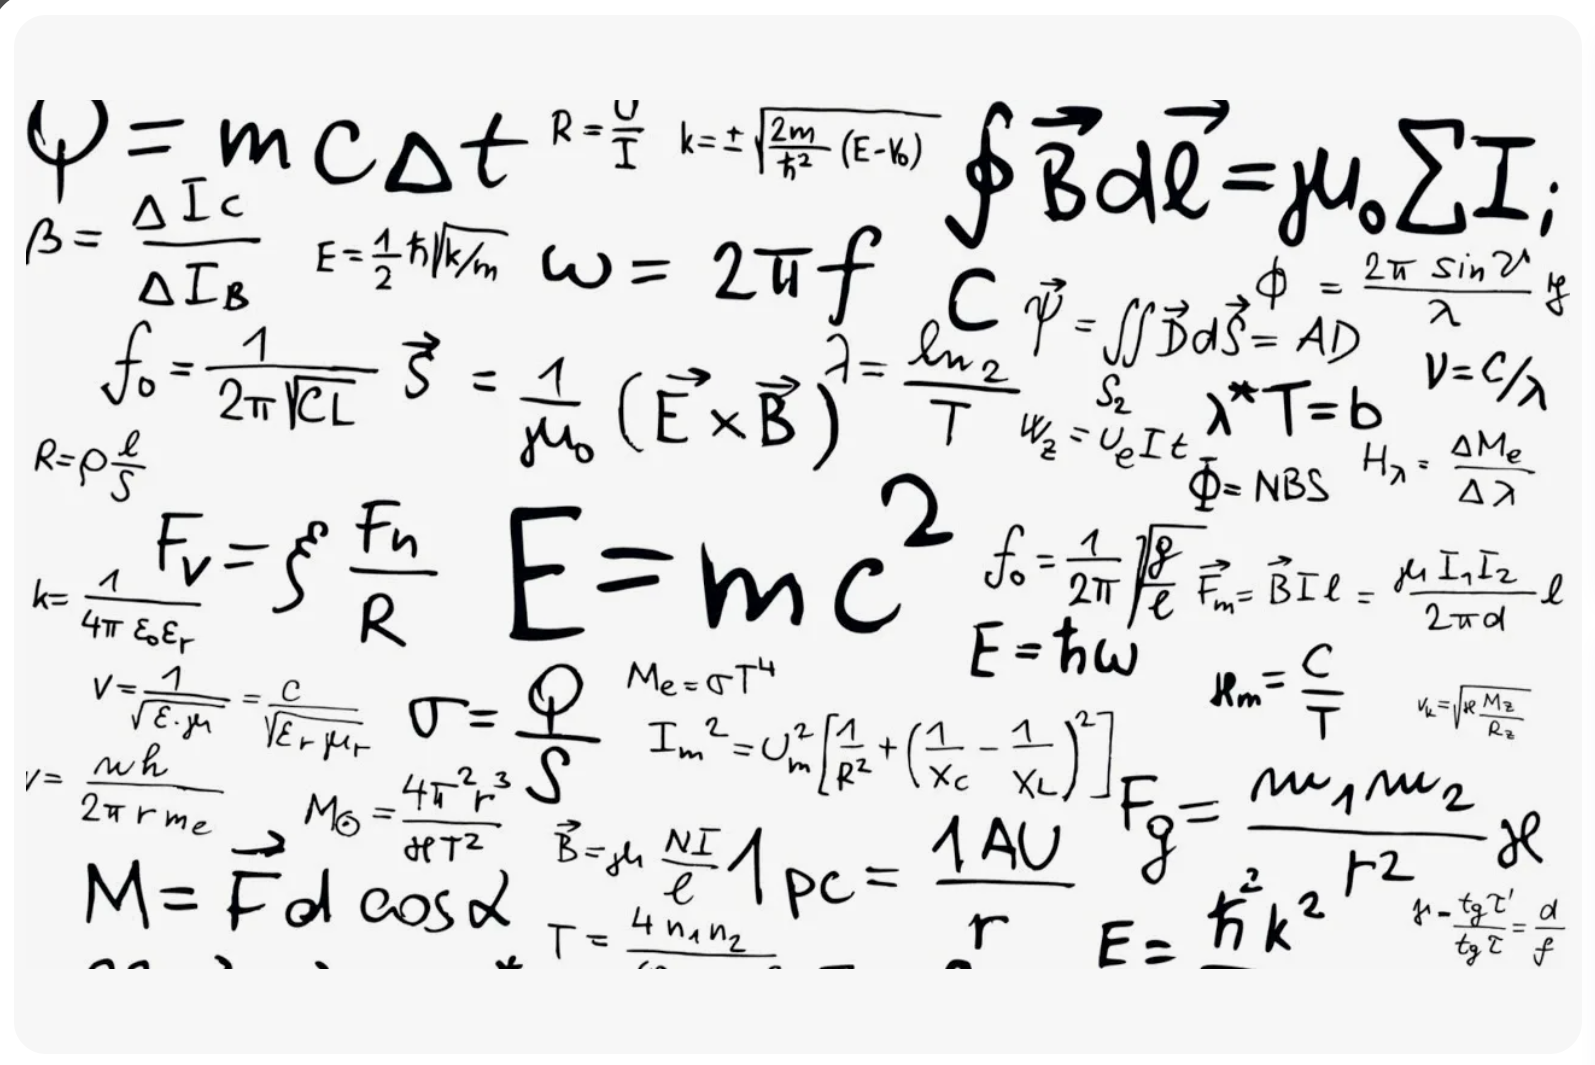 Q = m c Δ t
R = U/I
k = ± √(2m/ħ² (E-V₀))
∮ B⃗ dl⃗ = μ₀ Σ I i
C
β = ΔIc / ΔIB
E = 1/2 ħ √(k/m)
ω = 2π f
Ψ⃗ = ∬ D⃗ dS⃗ = AD
S₂
ϕ = 2π sin ϑ / λ y
f₀ = 1 / 2π√CL
S⃗ = 1/μ₀ (E⃗ × B⃗)
λ = ln 2 / T
λ* T = b
ν = c/λ
R = ρ l/S
W z = U e I t
Φ = NBS
H λ = ΔMe / Δλ
Fv = ξ Fn / R
E = mc²
f₀ = 1/2π √(g/l)
F⃗m = B⃗ I l = μ I₁ I₂ / 2πd l
k = 1 / 4π ε₀ εr
E = ħω
v = 1/√(ε·μ) = c/√(εr μr)
σ = Q/S
Me = σT⁴
ϰm = C/T
vk = √(ϰ Mz/Rz)
Im² = Um² [1/R² + (1/XC - 1/XL)²]
v = nh / 2π r me
M⊙ = 4π² r³ / ϰT²
Fg = m₁ m₂ / r² ϰ
B⃗ = μ NI / l
1 pc = 1 AU / r
M = F⃗ d cos α
T = 4 n₁ n₂
E = ħ² k²
γ = tg τ' / tg τ = d/f